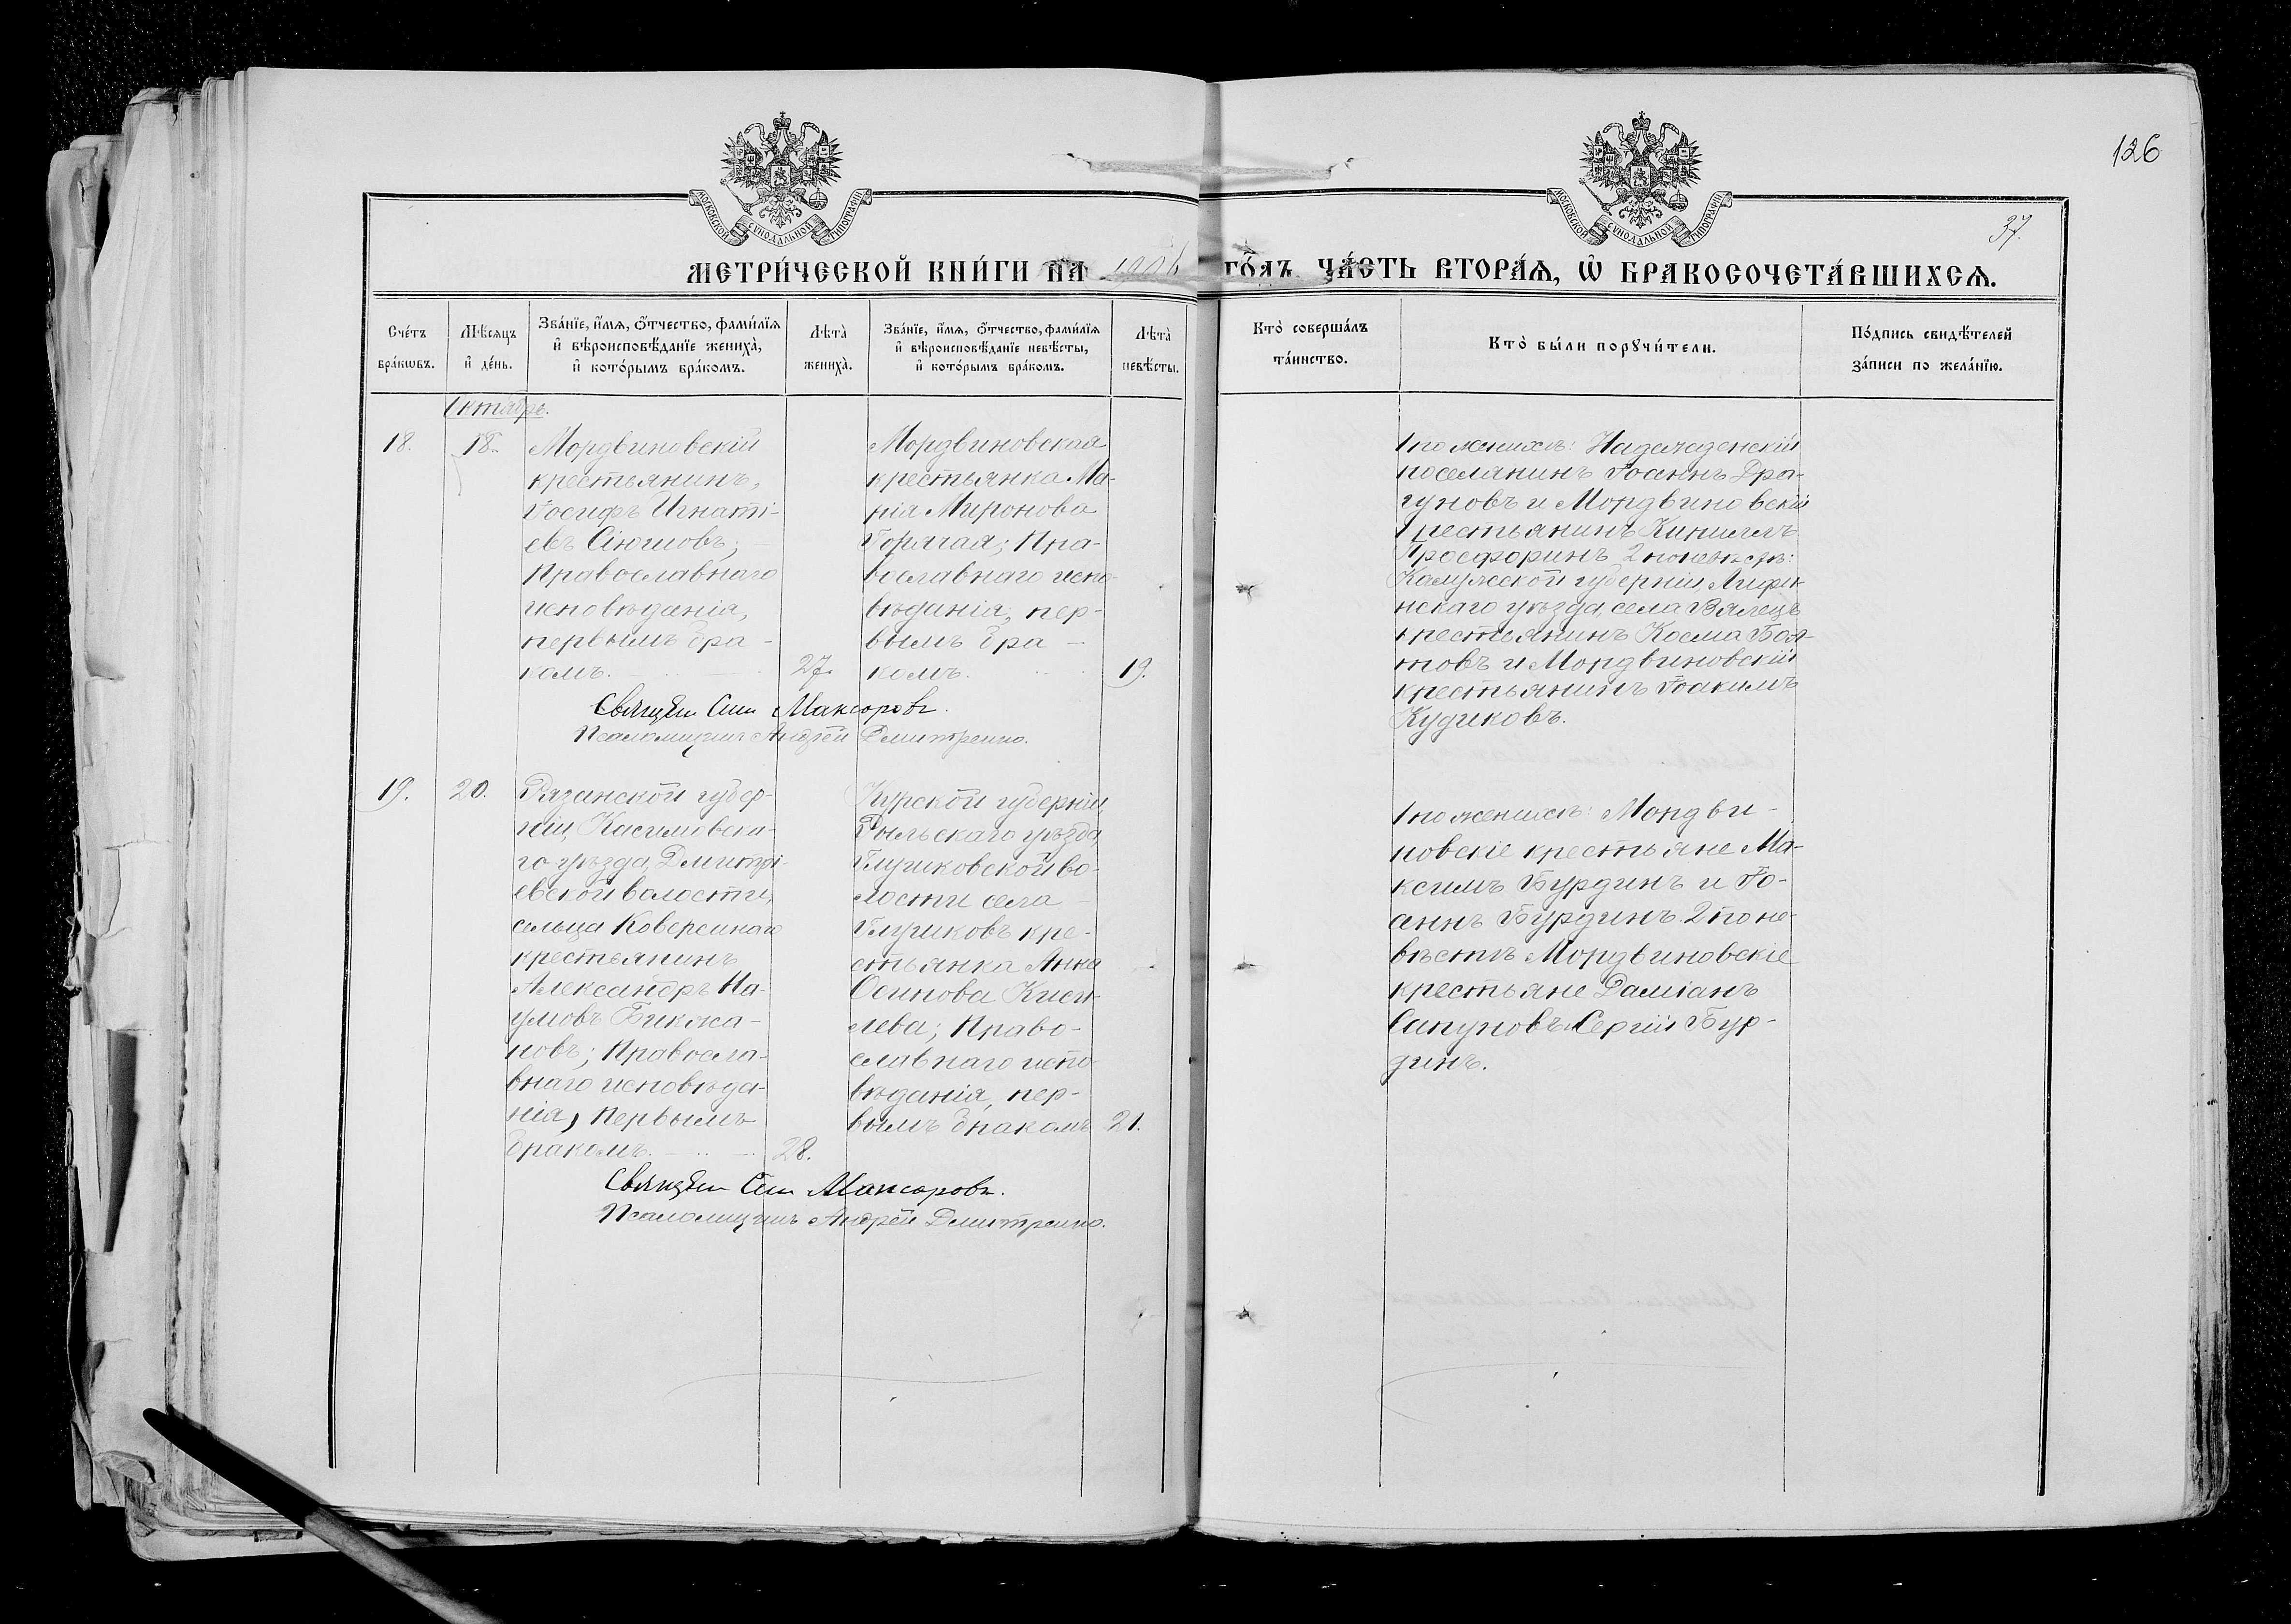 126
37.
МОСКОВСКОЙ СУНОДАЛЬНОЙ ТИПОГРАФІИ
МОСКОВСКОЙ СУНОДАЛЬНОЙ ТИПОГРАФІИ
МЕТРИ́ЧЕСКОЙ КНИ́ГИ НА 1906 ГО́ДЪ, ЧА́СТЬ ВТОРА́Ѧ, Ѿ БРАКОСОЧЕТА́ВШИХСѦ.
Сче́тъ бра́кѡвъ.
Мѣ́сяцъ и҆ де́нь.
Зва́нїе, и҆́мѧ, ѻ҆́тчество, фами́лїѧ
и҆ вѣроисповѣ́данїе жениха̀,
и҆ кото́рымъ бра́комъ.
Лѣта̀ жениха̀.
Зва́нїе, и҆́мѧ, ѻ҆́тчество, фами́лїѧ
и҆ вѣроисповѣ́данїе невѣ́сты,
и҆ кото́рымъ бра́комъ.
Лѣта̀ невѣ́сты.
Кто̀ соверша́лъ
та́инство.
Кто̀ бы́ли порꙋчи́тели.
По́дпись свидѣ́телей
за́писи по жела́нїю.
Октябрь.
18.
18.
Мордвиновскій
крестьянинъ,
Іосифъ Игнаті-
евъ Сіютовъ;
Православнаго
исповѣданія,
первымъ бра-
комъ.
27.
Мордвиновская
крестьянка Ма-
рія Миронова
Горячая; Пра-
вославнаго испо-
вѣданія, пер-
вымъ бра-
комъ.
19.
1 по женихѣ: Надежденскій
поселянинъ Іоаннъ Дра-
гуновъ и Мордвиновскій
крестьянинъ Кириллъ
Просфоринъ 2 по невѣстѣ:
Калужской губерніи,
нскаго уѣзда, села
крестьянинъ Косма Бол-
товъ и Мордвиновскій
крестьянинъ Іоакимъ
Кудиковъ.
Священ Сим Максоровъ.
Псаломщикъ Андрей Дмитренко.
19.
20.
Рязанской губер-
ніи, Касимовска-
го уѣзда, Дмитрі-
евской волости,
сельца Коверскаго
крестьянинъ
Александръ На-
умовъ Бикжа-
новъ; Правосла-
внаго исповѣда-
нія, первымъ
бракомъ.
28.
Курской губерніи,
Рыльскаго уѣзда,
Глушковской во-
лости села
Глушковъ кре-
стьянка Анна
Осипова Кисе-
лева; Право-
славнаго испо-
вѣданія, пер-
вымъ бракомъ
21.
1 по женихѣ: Мордви-
новскіе крестьяне Ма-
ксимъ Бурдинъ и Іо-
аннъ Бурдинъ. 2 по не-
вѣстѣ Мордвиновскіе
крестьяне Даміанъ
Сапуновъ и Сергій Бур-
динъ.
Священ Сим Максоровъ.
Псаломщикъ Андрей Дмитренко.